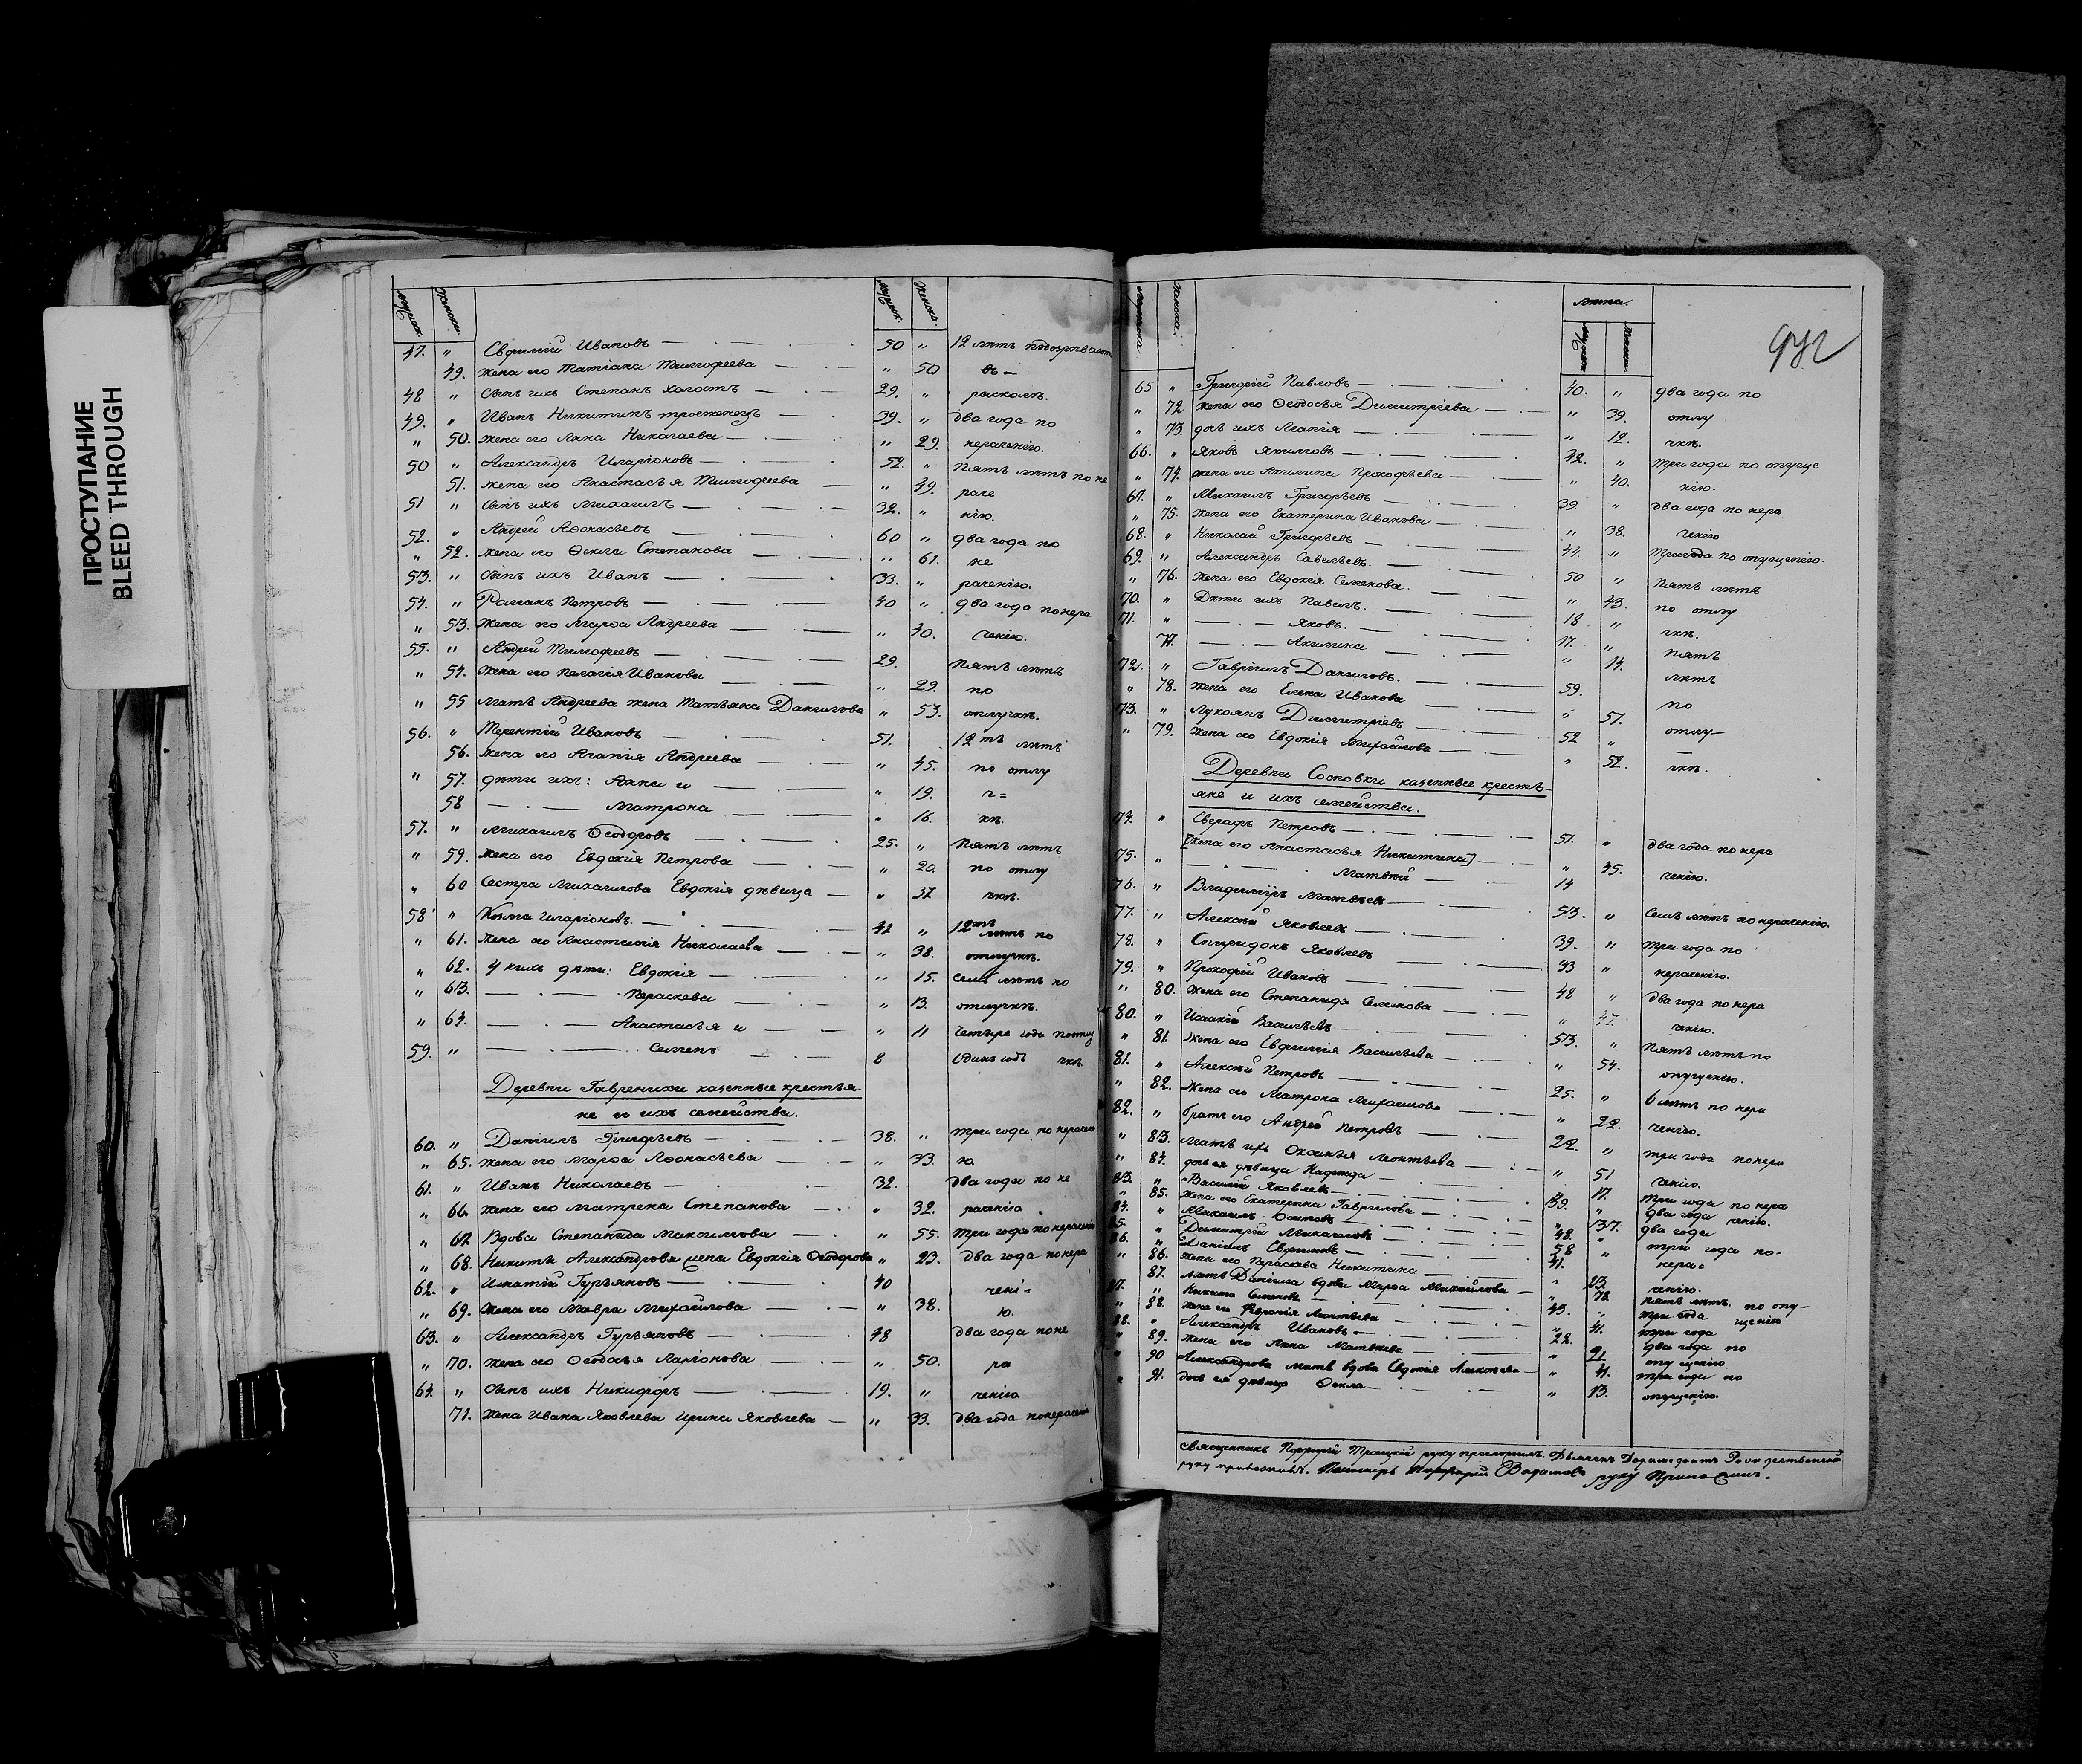 ПРОСТУПАНИЕ
BLEED THROUGH
мужск. женска. мужск. женска.
47. " Евфимiй Ивановъ 50 " 12 лѣтъ
49. жена его Татiана Тимофеева " 50 въ
48 " сынъ ихъ Степанъ холостъ 29. " расколѣ.
49. " Иванъ Никитинъ 39. " два года по
" 50. жена его Анна Николаева " 29. нераченiю.
50 " Александръ Иларiоновъ 52. " пять лѣтъ по не
51. жена его Анастасья Тимофеева " 49. раче
51 " сынъ ихъ Михаилъ 32. " нiю.
52. " Андрей Аѳонасьевъ 60 " два года по
" 52. жена его Ѳекла Степанова " 61. не
53. " сынъ ихъ Иванъ 33. " раченiю.
54. " Романъ Петровъ 40 " два года по нера
" 53. жена его Марѳа Андреева " 40. ченiю.
55. " Андрей Тимофеевъ 29. пять лѣтъ
" 54. жена его Пелагiя Иванова " 29. по
" 55 мать Андреева жена Татьяна Данилова " 53. отлучкѣ.
56. " Терентiй Ивановъ 51. 12ть лѣтъ
56. жена его Агапiя Андреева " 45. по отлу
" 57. дѣти ихъ: Анна и " 19. ч=
58 Матрона " 16. кѣ.
57. " Михаилъ Ѳеодоровъ 25. " пять лѣтъ
" 59. жена его Евдокiя Петрова " 20. по отлу
" 60 сестра Михаилова Евдокiя дѣвица " 37 чкѣ.
58 " Козма Иларiоновъ 42 " 12ть лѣтъ по
" 61. жена его Анастасiя Николаева " 38. отлучкѣ.
" 62. У нихъ дѣти: Евдокiя " 15. семь лѣтъ по
" 63. Параскева " 13. отлучкѣ.
" 64. Анастасья и " 11 четыре года по отлу
59. " Семенъ 8 одинъ годъ чкѣ.
Деревни Гавренихи казенные крестья-
не и ихъ семейства.
60. " Данiилъ Григорьевъ 38. " три года по нерачен
" 65. жена его Марѳа Аѳонасьева " 33. ю.
61. " Иванъ Николаевъ 32. два года по не
" 66. жена его Матрена Степанова " 32. раченiю
" 67. Вдова Степанида Максимова " 55. три года по нерачен
" 68. Никиты Александрова жена Евдокiя Ѳеодорова " 23. два года по нера
62. " Игнатiй Гурьяновъ 40 ченi=
" 69. жена его Мавра Михайлова " 38. ю.
63. " Александръ Гурьяновъ 48 два года по не
" 70. жена его Ѳеодосья Ларiонова " 50. ра
64. " сынъ ихъ Никифоръ 19. " ченiю
71. жена Ивана Яковлева Ирина Яковлева " 33. два года по нерачен
лѣта.
65 " Григорiй Павловъ 40. " два года по
" 72 жена его Ѳеодосья Димитрiева " 39. отлу
" 73. дочь ихъ " 12. чкѣ.
66. " Яковъ 42. " три года по опуще
" 74. жена его Акилина Прокофьева " 40. нiю.
67. " Михаилъ Григорьевъ 39 " два года по нера
" 75. жена его Екатерина Иванова " 38. ченiю
68. " Николай Григорьевъ 44. " три года по опущенiю.
69. " Александръ Савельевъ 50 " пять лѣтъ
" 76. жена его Евдокiя Семенова. " 43. по отлу
70. " Дѣти ихъ Павелъ. 18 " чкѣ.
71. " Яковъ. 17. " пять
77. Акилина " 14. лѣтъ
72. " Гаврiилъ Даниловъ. 59. по
" 78. жена его Елена Иванова " 57. отлу
73. " Лукоянъ Димитрiевъ 52 "
" 79. жена его Евдокiя Михайлова " 52. чкѣ.
Деревни Сосновки казенные кресть-
яне и ихъ семейства.
74. " Евграфъ Петровъ 51. " два года по нера
[жена его Анастасья Никитина] " 45. ченiю.
75. " Матвѣй 14
76. " Владимiръ Матвѣевъ 53. " семь лѣтъ по нераченiю.
77. " Алексѣй Яковлевъ 39. " три года по
78. " Спиридонъ Яковлевъ 43 " нераченiю.
79. " Прокофiй Ивановъ 48 " два года по нера
" 80. жена его Степанида Семенова " 47. ченiю.
80. " Исаакiй Васильевъ 53. " пять лѣтъ по
" 81. жена его Евфимiя Васильева " 54. опущенiю.
81. " Алексѣй Петровъ 25. " 6 лѣтъ по нера
" 82. жена его Матрона Михайлова " 22. ченiю.
82. " братъ его Андрей Петровъ 22. " три года по нера
" 83. мать ихъ Оксинья Леонтьева " 51 ченiю.
" 84. дочь ея дѣвица Надежда " 17. три года по нера
83. " Василiй Яковлевъ 39. " два года ченiю.
" 85. жена его Екатерина Гаврилова " 37. два года
84. " Михаилъ Осиповъ 48. " три года по
85. " Димитрiй Михайловъ 58 " нера=
86. " Данiилъ Ефремовъ 41.
" 86. жена его Параскева Никитина " 23. ченiю.
87. мать Данiила вдова Марѳа Михайлова " 78. пять лѣтъ по опу-
87. " Никита Семеновъ 43. " три года щенiю
" 88. жена его Феронiя Леонтьева " 41. три года
88. " Александръ Ивановъ 22. два года по
" 89. жена его Анна Матвѣева " 21. опущенiю
" 90 Александрова мать вдова Евдокiя Алексѣева " 41. три года по
" 91. дочь ея дѣвица Ѳекла " 13. опущенiю.
священникъ Порфирiй Троицкiй руку приложилъ. Дьяконъ
руку приложилъ. Пономарь руку приложилъ.